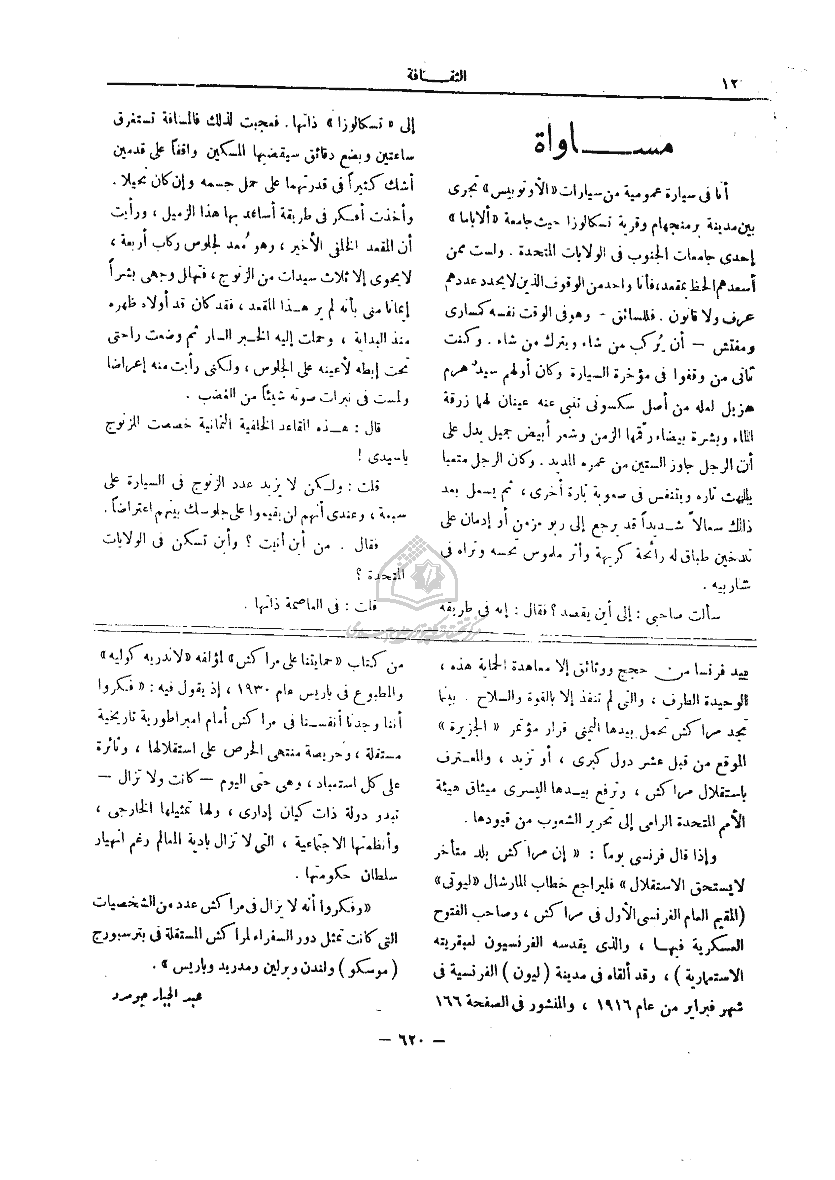 ١٢
الثقـــافة
مســـــاواة
أنا فى سيارة عمومية من سيارات «الأوتوبيس» تجرى
بين مدينة برمنجهام وقرية تسكالوزا حيث جامعة «ألاباما»
إحدى جامعات الجنوب فى الولايات المتحدة . ولست ممن
أسعدهم الحظ بمقعد، فأنا واحد من الوقوف الذين لا يحدد عددهم
عرف ولا قانون . فللسائق - وهو فى الوقت نفسه كمسارى
ومفتش — أن يُركب من شاء ويترك من شاء . وكنت
ثانى من وقفوا فى مؤخرة السيارة وكان أولهم سيدٌ هرم
هزيل لعله من أصل سكسونى تنبى عنه عينان لهما زرقة
الماء وبشرة بيضاء رقّمها الزمن وشعر أبيض جميل يدل على
أن الرجل جاوز الستين من عمره المديد . وكان الرجل متعبا
يلهث تاره ويتنفس فى صعوبة تارة أخرى ، ثم يسعل بعد
ذلك سعالاً شـديداً قد يرجع إلى ربو مزمن أو إدمان على
تدخين طباق له رائحة كريهة وأثر ملموس تحسه وتراه فى
شاربيه .
سألت صاحبى : إلى أين يقصد ؟ فقال : إنه فى طريقه
إلى « تسكالوزا » ذاتها . فعجبت لذلك فالمسافة تستغرق
ساعتين وبضع دقائق سيقضيها المسكين واقفاً على قدمين
أشك كثيراً فى قدرتهما على حمل جسمه وإن كان نحيلا .
وأخذت أفكر فى طريقة أساعد بها هذا الزميل ، ورأيت
أن المقعد الخلفى الأخير ، وهو مُعد لجلوس ركاب أربعة ،
لا يحوى إلا ثلاث سيدات من الزنوج ، فتهلل وجهى بشراً
إيمانا منى بأنه لم ير هـذا المقعد ، فقد كان قد أولاه ظهره
منذ البداية ، وحملت إليه الخـبر السار ثم وضعت راحتى
تحت إبطه لأعينه على الجلوس ، ولكنى رأيت منه إعراضا
ولمست فى نبرات صوته شيئاً من الغضب .
قال : هـذه المقاعد الخلفية الثمانية خصصت للزنوج
ياسيدى !
قلت : ولـكن لا يزيد عدد الزنوج فى السيارة على
سبعة ، وعندى أنهم لن يقيموا على جلوسك بينهم اعتراضاً .
فقال . من أين أنت ؟ وأين تسكن فى الولايات
المتحدة ؟
قلت : فى العاصمة ذاتها .
بيد فرنسا من حجج ووثائق إلا معاهدة الحماية هذه ،
الوحيدة الطرف ، والتى لم تنفذ إلا بالقوة والسلاح . بينما
تجد مراكش تحمل بيدها اليمنى قرار مؤتمر « الجزيرة »
الموقع من قبل عشر دول كبرى ، أو تزيد ، والمعـترف
باستقلال مراكش ، وترفع بيـدها اليسرى ميثاق هيئة
الأمم المتحدة الرامى إلى تحرير الشعوب من قيودها .
وإذا قال فرنسى يوماً : « إن مراكش بلد متأخر
لا يستحق الاستقلال » فليراجع خطاب المارشال «ليوتى»
(المقيم العام الفرنسى الأول فى مراكش ، وصاحب الفتوح
العسكرية فيهـا ، والذى يقدسه الفرنسيون لعبقريته
الاستعمارية ) ، وقد ألقاه فى مدينة ( ليون ) الفرنسية فى
شهر فبراير من عام ١٩١٦ ، والمنشور فى الصفحة ١٦٦
من كتاب «حمايتنا على مراكش» لمؤلفه «لاندريه كوليه»
والمطبوع فى باريس عام ١٩٣٠ ، إذ يقول فيه : « فكروا
أننا وجدنا أنفسـنا فى مراكش أمام امبراطورية تاريخية
مستقلة ، وحريصة منتهى الحرص على استقلالها ، وثائرة
على كل استعباد ، وهى حتى اليوم — كانت ولا تزال —
تبدو دولة ذات كيان إدارى ، ولها تمثيلها الخارجى ،
وأنظمتها الاجتماعية ، التى لا تزال بادية المعالم رغم انهيار
سلطان حكومتها .
«وفكروا أنه لا يزال فى مراكش عدد من الشخصيات
التى كانت تمثل دور السفراء لمراكش المستقلة فى بترسبورج
( موسكو ) ولندن وبرلين ومدريد وباريس » .
عبد الجبار جومرد
— ٦٢٠ —